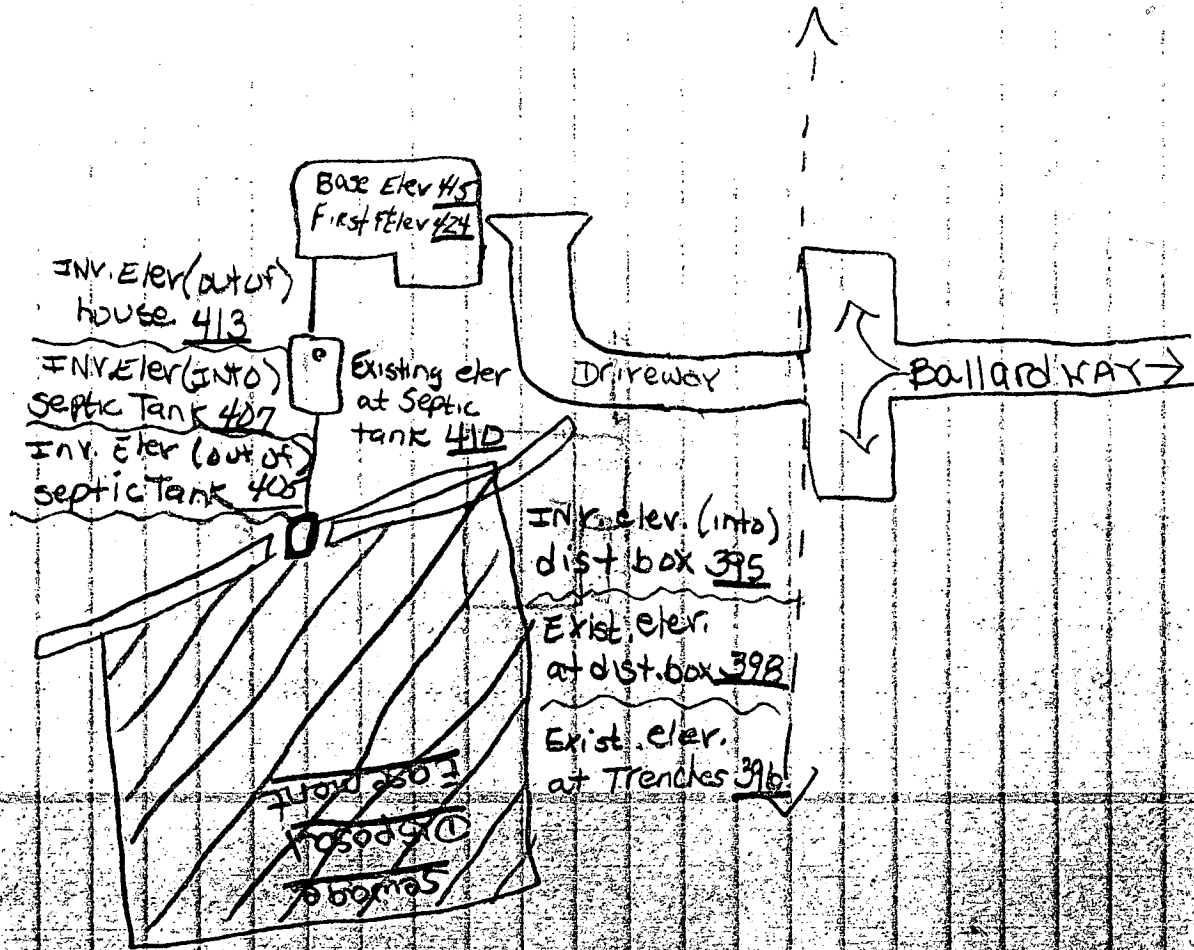 Base Elev 415
First Fl Elev 424
INV. Elev (out of)
house 413
INV. Elev (INTO)
septic Tank 407
Inv. Elev (out of)
septic Tank 405
Existing elev
at Septic
tank 410
Driveway
Ballard WAY
INV. elev. (into)
dist box 395
Exist. elev.
at dist. box 398
Exist. elev.
at Trenches 396
Sewage
Disposal